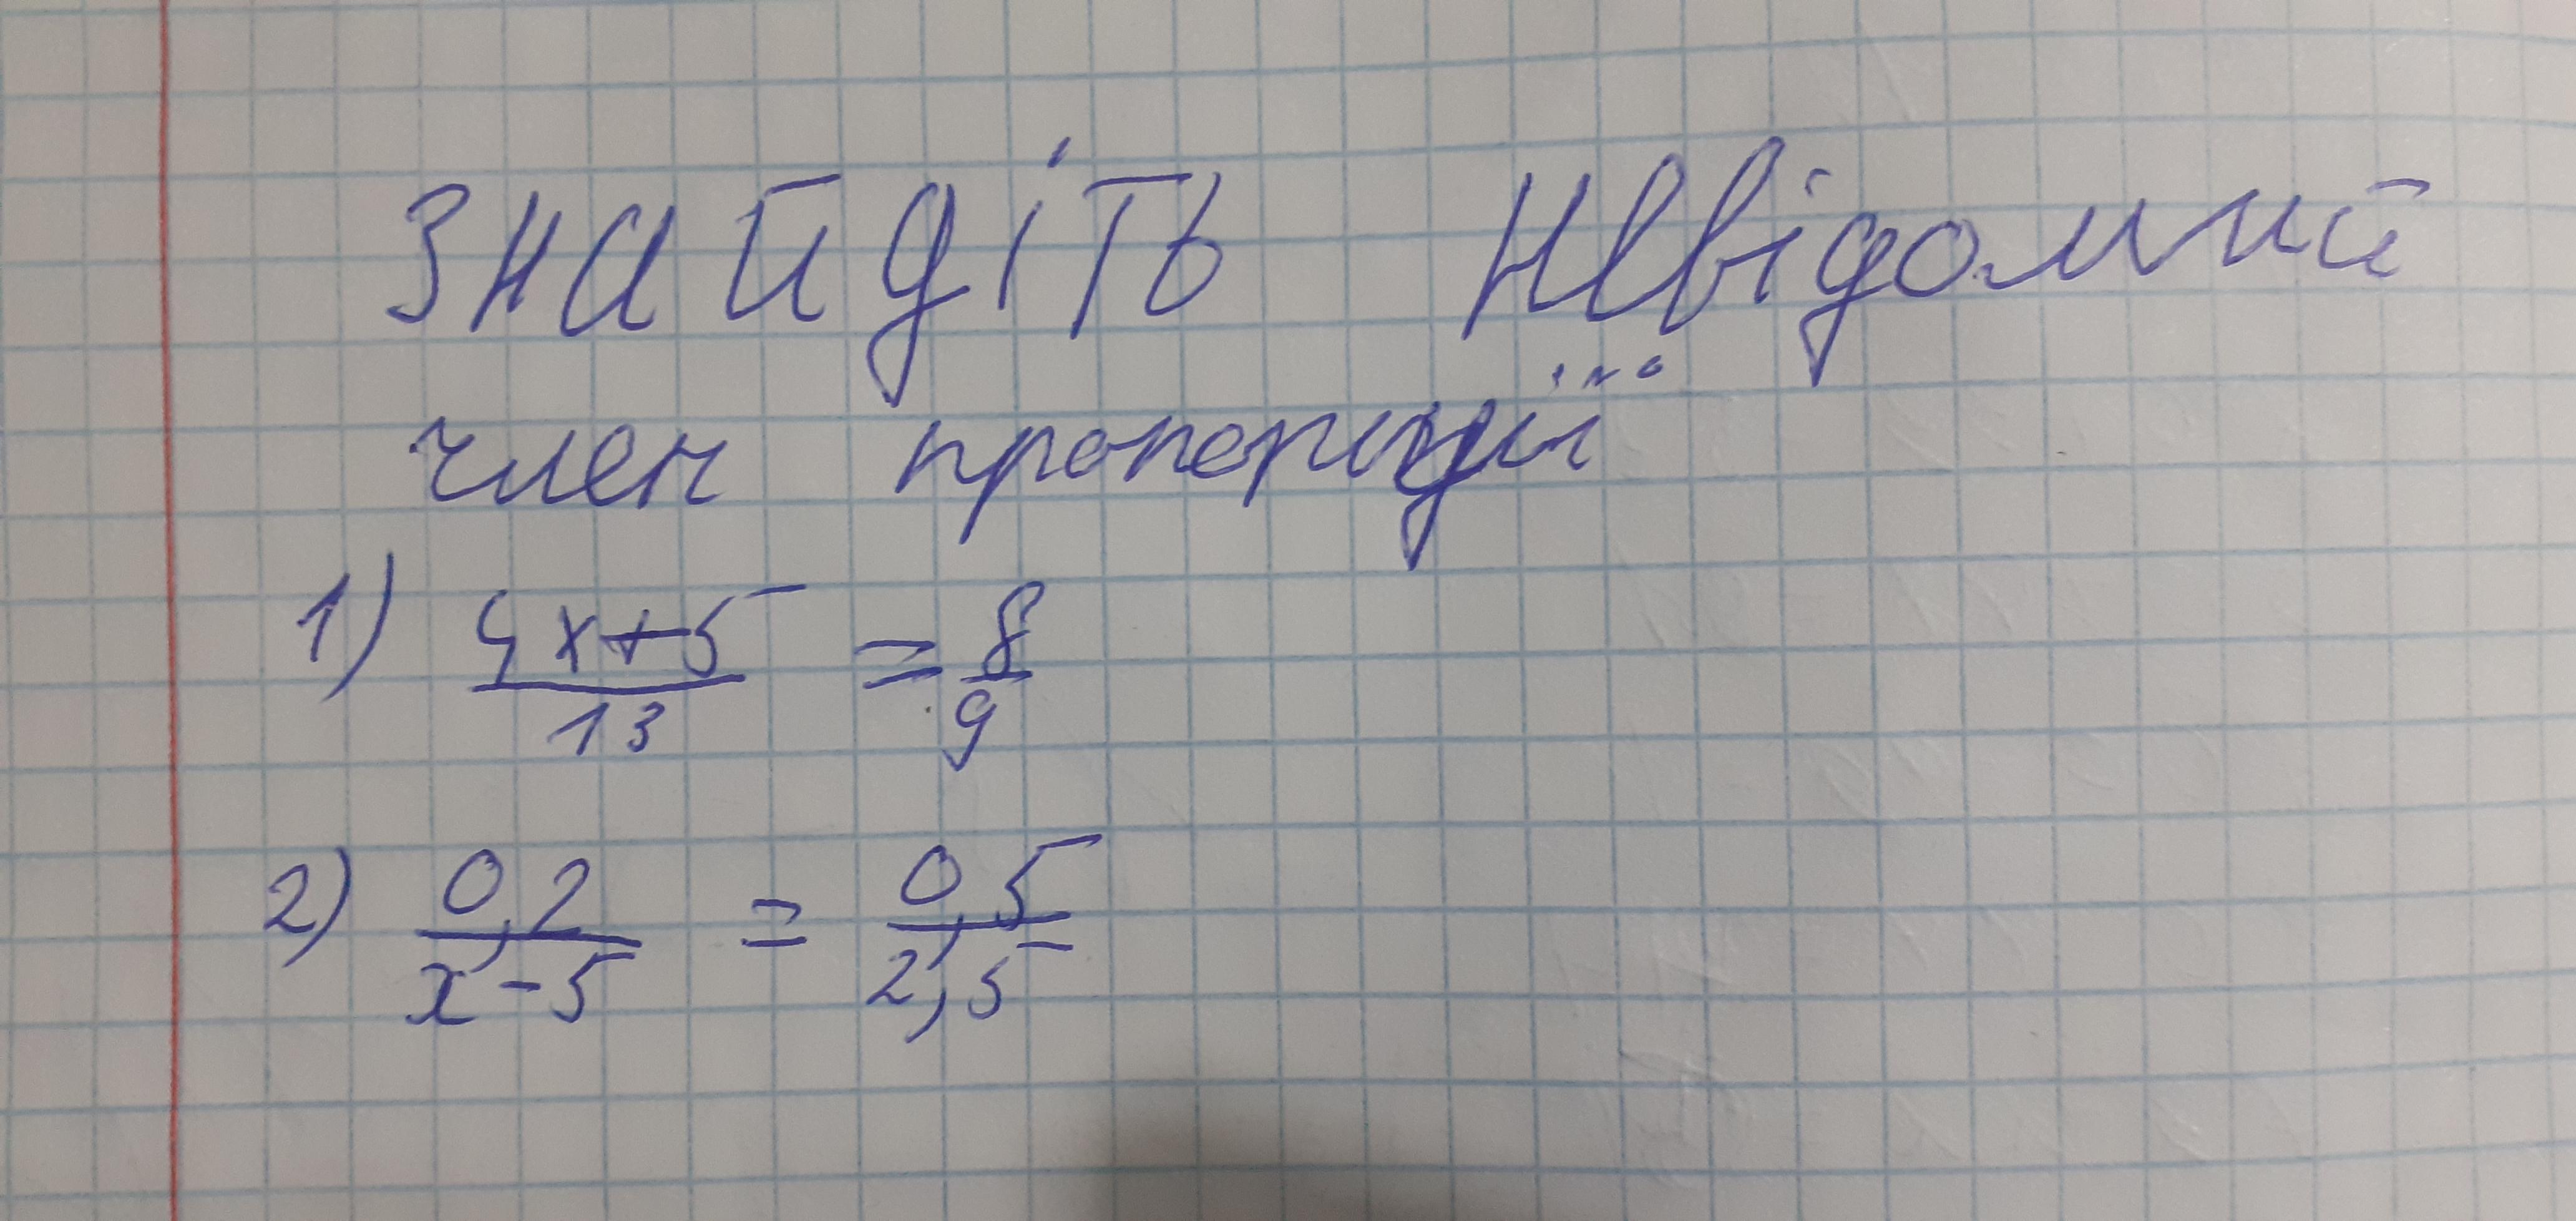 знайдіть невідомий
член пропорції
1) 4x+5/13 = 8/9
2) 0,2/x-5 = 0,5/2,5